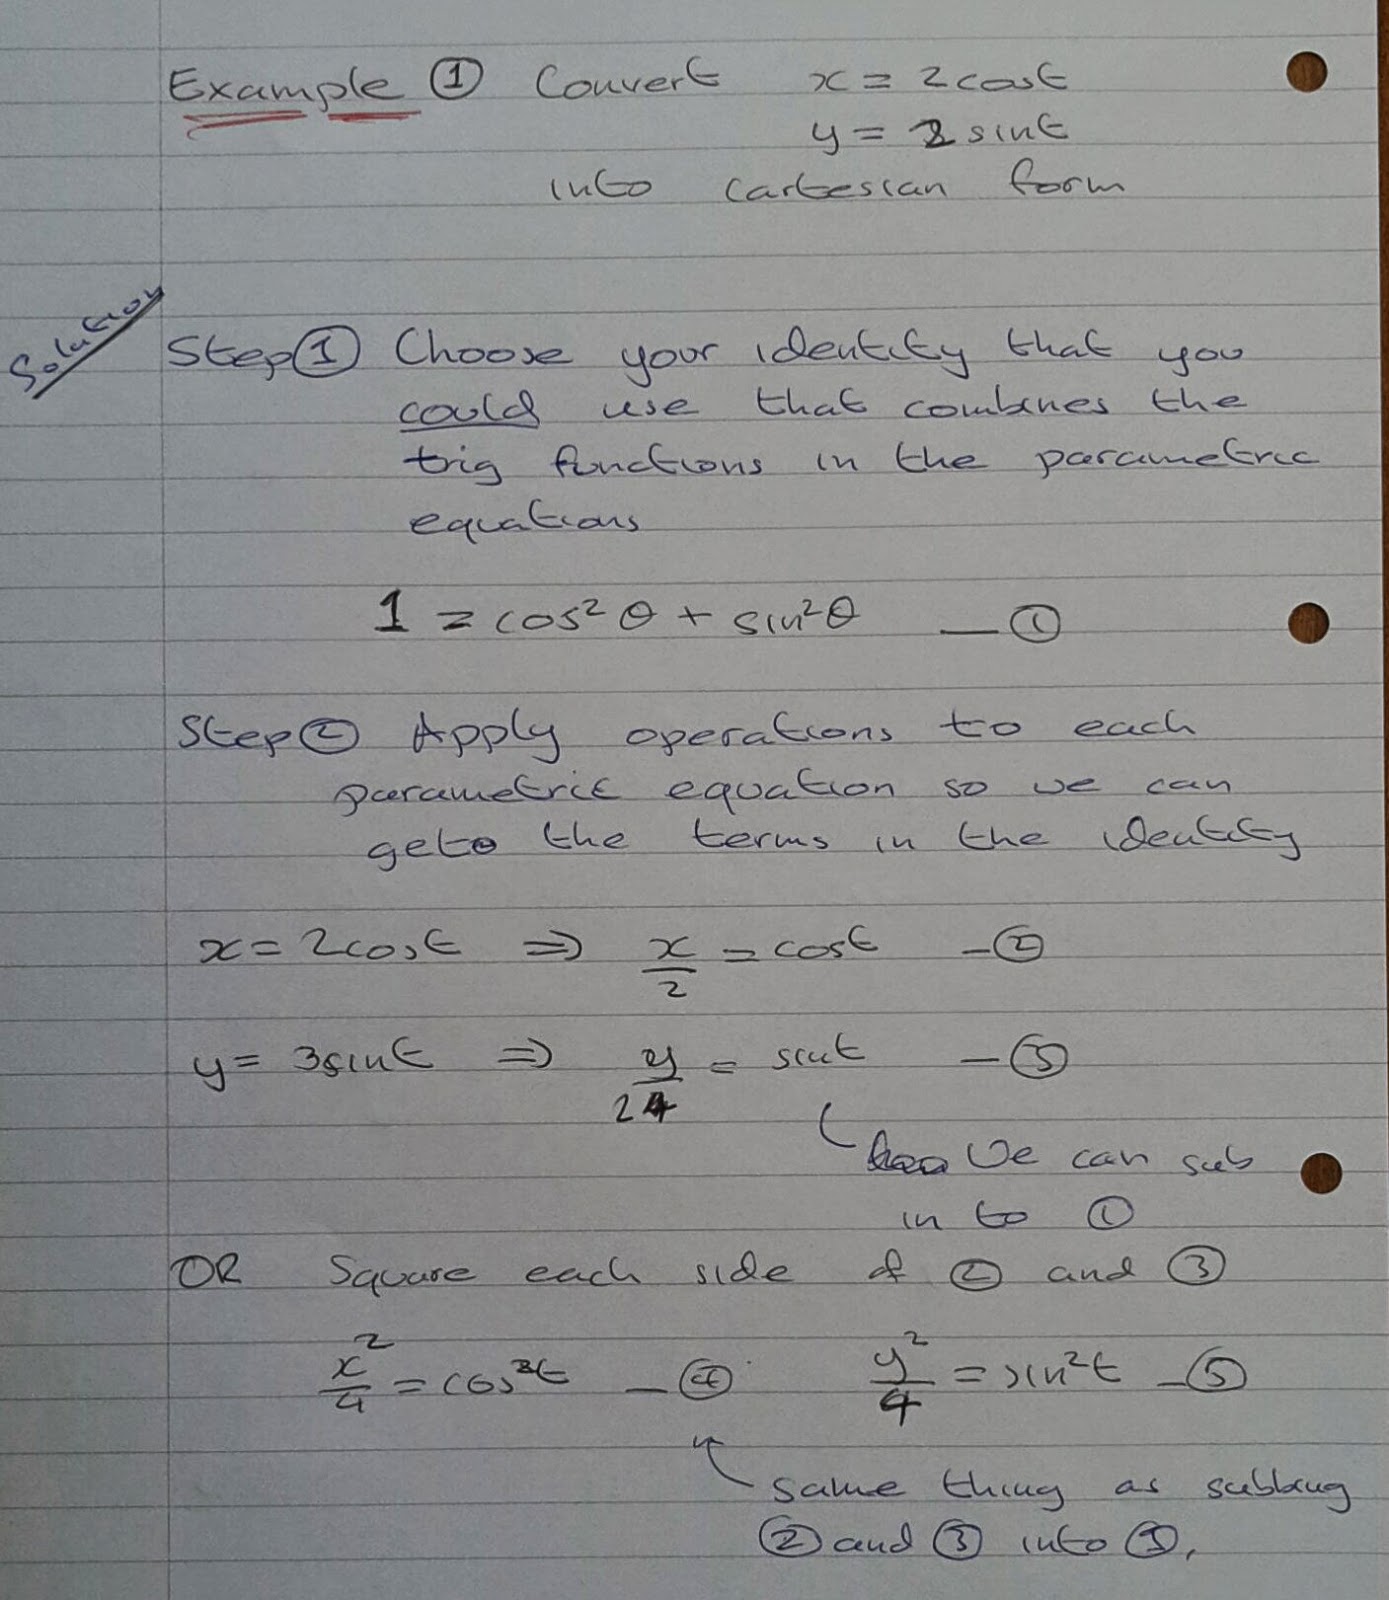 Example ① Convert x = 2cost
y = 2sint
into cartesian form
Solution
Step ① Choose your identity that you
could use that combines the
trig functions in the parametric
equations
1 = cos²θ + sin²θ — ①
Step ② Apply operations to each
parametric equation so we can
get the terms in the identity
x = 2cost ⇒ x/2 = cost — ②
y = 3sint ⇒ y/2 = sint — ③
We can sub
in to ①
OR Square each side of ② and ③
x²/4 = cos²t — ④ y²/4 = sin²t — ⑤
same thing as subbing
② and ③ into ①.